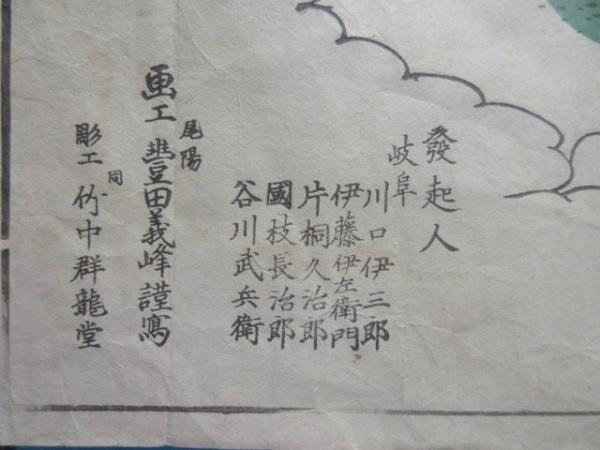 發起人
岐阜
川口伊三郎
伊藤伊左衛門
片桐久治郎
國枝長治郎
谷川武兵衛
尾陽
画工 豊田義峰謹寫
同
彫工 竹中群龍堂